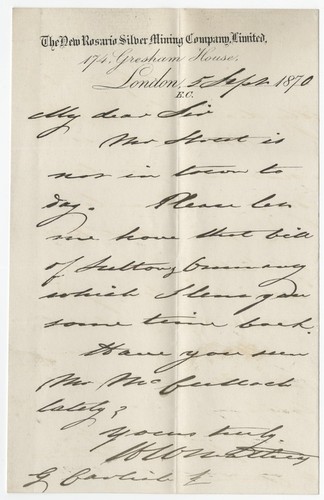 The New Rosario Silver Mining Company, Limited,
174, Gresham House,
London, 5 Sept 1870
E.C.
My dear Sir
Mr Street is
not in town to
day. Please let
me have that bill
of Sutton &
which I lent you
some time back.
Have you seen
Mr McCulloch
lately?
Yours truly
G Carlisle